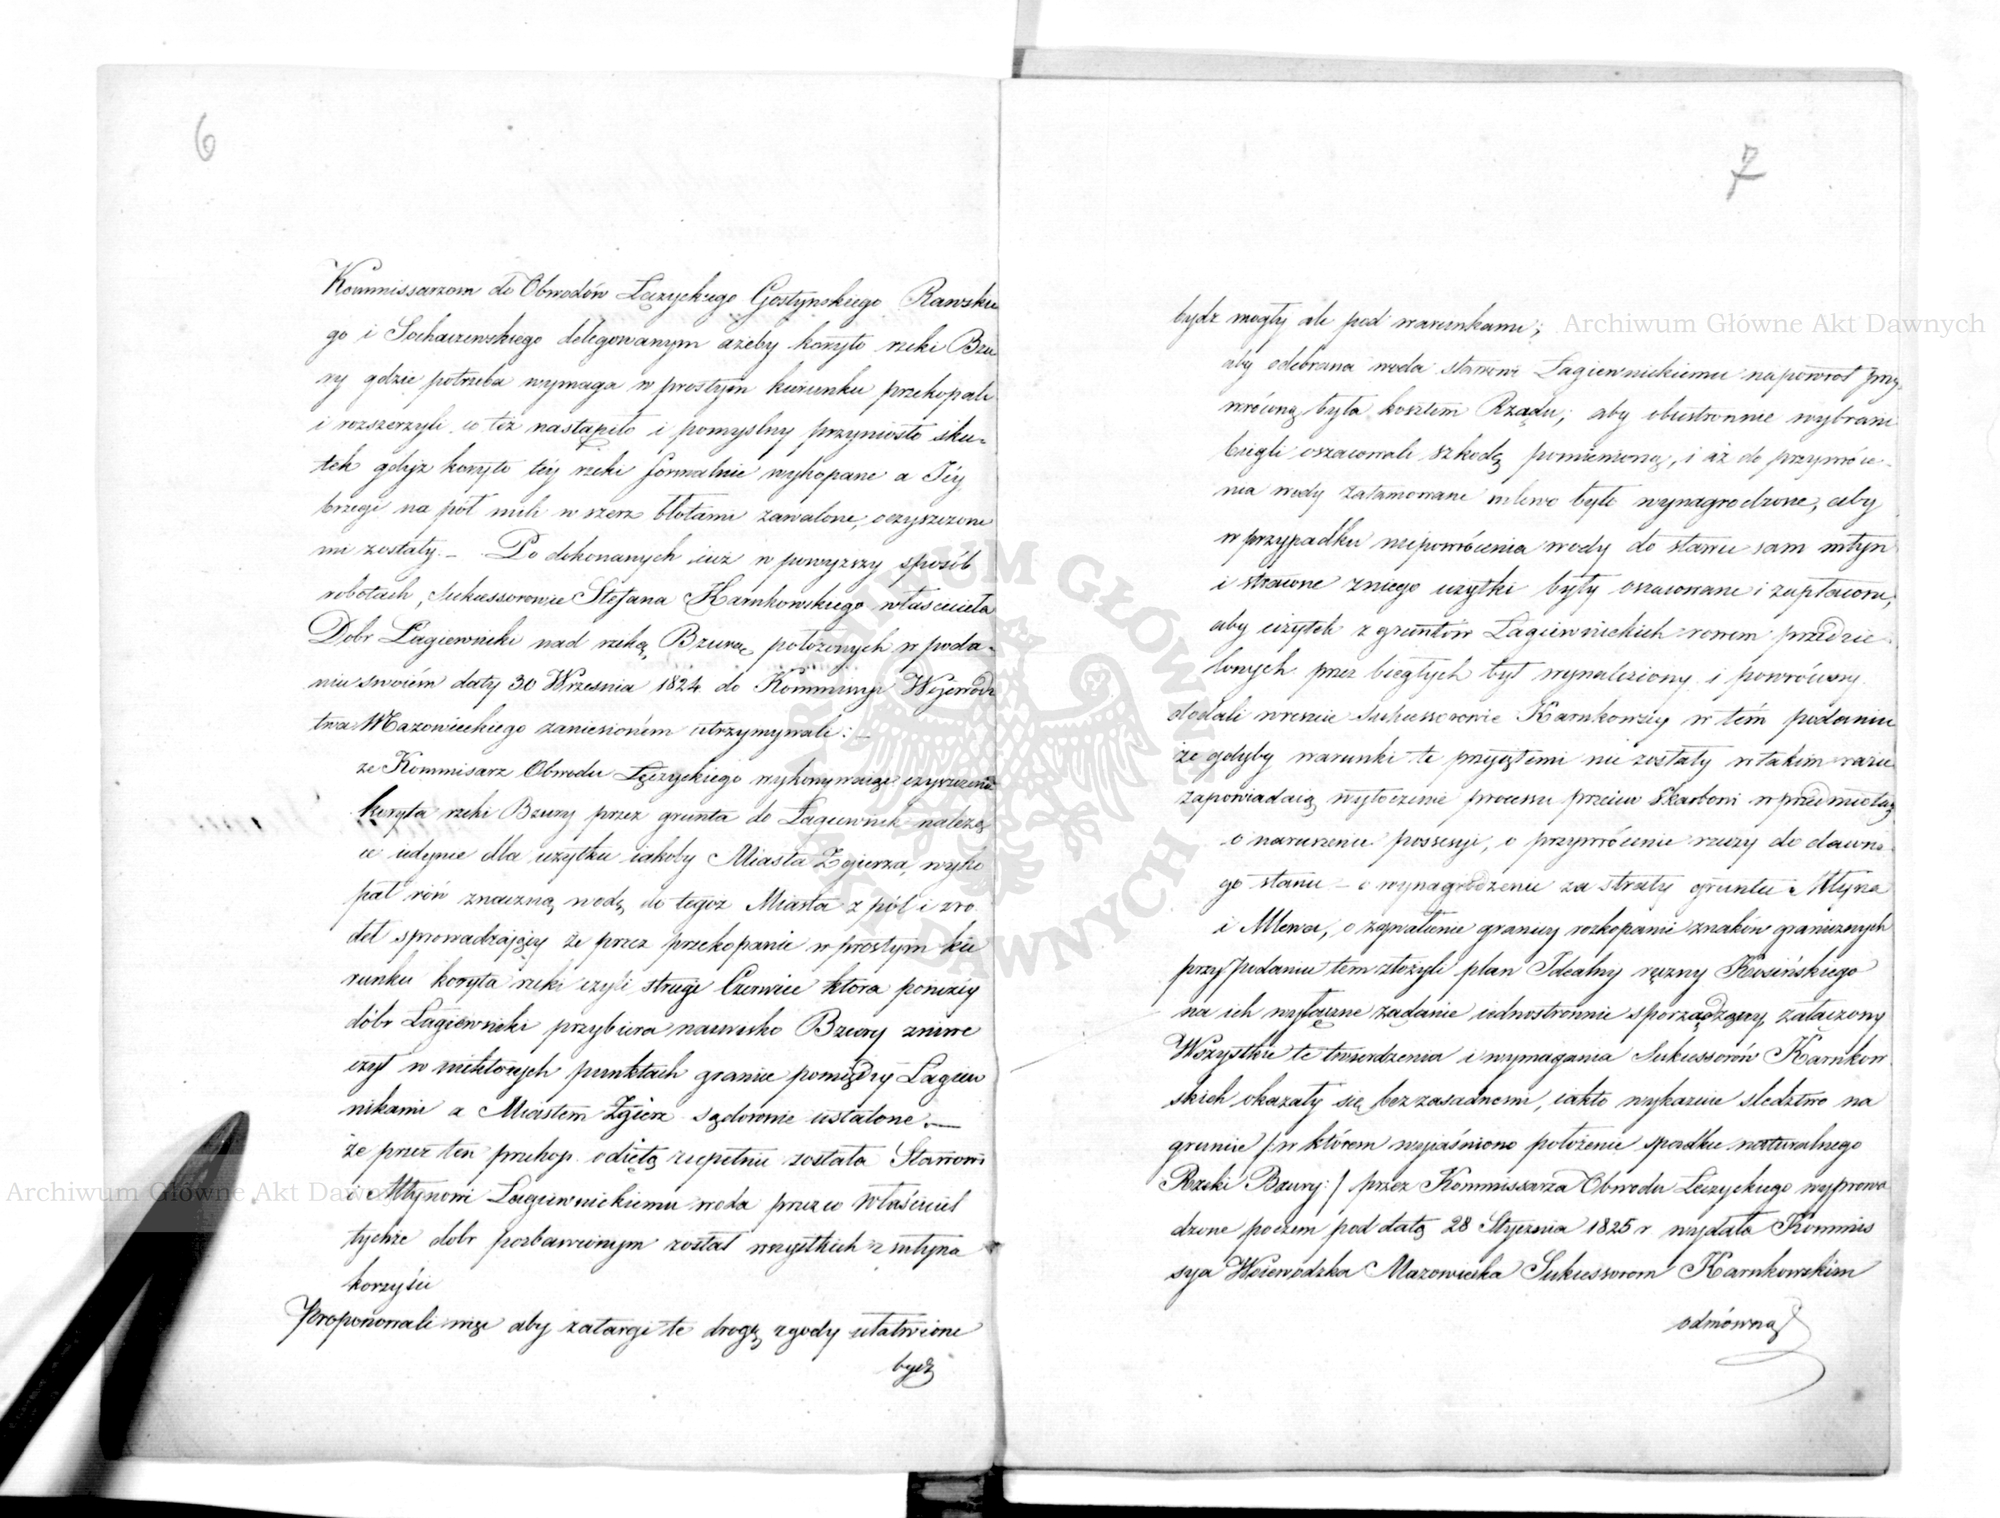 6
Kommissarzom do Obwodów Łęczyckiego Gostynskiego Rawskie
go i Sochaczewskiego delegowanym ażeby koryto rzeki Bzu
ry gdzie potrzeba wymaga w prostym kierunku przekopali
i rozszerzyli co też nastąpiło i pomyslny przyniosło sku-
tek gdyż koryto téy rzeki formalnie wykopane a Jéy
brzegi na pół mili w szerz błotami zawalone, oczyszczone
mi zostały. – Po dokonanych iuż w powyzszy sposób
robotach, Sukcessorowie Stefana Karnkowskiego właściciela
Dobr Łagiewniki nad rzeką Bzurą położonych w poda-
niu swoiém daty 30 Września 1824 do Kommissyi Wojewódz
twa Mazowieckiego zaniesioném utrzymywali: –
że Kommisarz Obwodu Łęczyckiego wykonywaiąc czyszczenie
koryta rzeki Bzury przez grunta do Łagiewnik należą
ce iedynie dla użytku iakoby Miasta Zgierza, wyko
pał rów znaczną wodę do tegoż Miasta z pól i zro
deł sprowadzający że przez przekopanie w prostym kie
runku koryta rzeki czyli strugi Czerwice która poniżéy
dóbr Łagiewniki przybiera nazwisko Bzury zniwe
czył w niektórych punktach granice pomiędzy Łagiew
nikami a Miastem Zgierz sądownie ustalone. –
że przez ten przekop odięta zupełnie została Stawowi
i Młynowi Łagiewnickiemu woda przez co Właściciel
tychże dobr pozbawionym został wszystkich z młyna
korzyści
Proponowali więc aby zatargi te drogą zgody ułatwione
bydź
7
bydz mogły ale pod warunkami;
aby odebrana woda stawowi Łagiewnickiemu napowrot przy-
wróconą była kosztem Rządu; aby obustronnie wybrani
biegli oszacowali szkodę pomienioną, i aż do przywróce-
nia wody zatamowane mlewo było wynagrodzone, aby
w przypadku niepowrócenia wody do stawu sam młyn
i stracone z niego użytki były oszacowane i zapłacone,
aby użytek z gruntów Łagiewnickich rowem przedzie-
lonych przez biegłych był wynaleziony i powrócony.
dodali wreszcie Sukcessorowie Karnkowscy w tém podaniu
że gdyby warunki te przyjętemi nie zostały w takim razie
zapowiadaią wytoczenie processu przeciw Skarbowi w przedmiotach
o naruszenie possessyi, o przywrócenie rzeczy do dawne-
go stanu – o wynagrodzenie za straty gruntu Młyna
i Mlewa, o zgwałcenie granicy rozkopanie znaków granicznych
przy podaniu tem złożyli plan Idealny ręczny Kosińskiego
na ich wyłączne żądanie iednostronnie sporządzony załączony
Wszystkie te twierdzenia i wymagania Sukcessorów Karnkow
skich okazały się bezzasadnemi, iakto wykazuie sledztwo na
gruncie /w którem wyjaśniono położenie spadku naturalnego
Rzeki Bzury:/ przez Kommissarza Obwodu Łęczyckiego wyprowa
dzone poczem pod datą 28 Stycznia 1825 r. wydała Kommis
sya Woiewodzka Mazowiecka Sukcessorom Karnkowskim
odmówną
Archiwum Główne Akt Dawnych
Archiwum Główne Akt Dawnych
ARCHIWUM GŁÓWNE AKT DAWNYCH